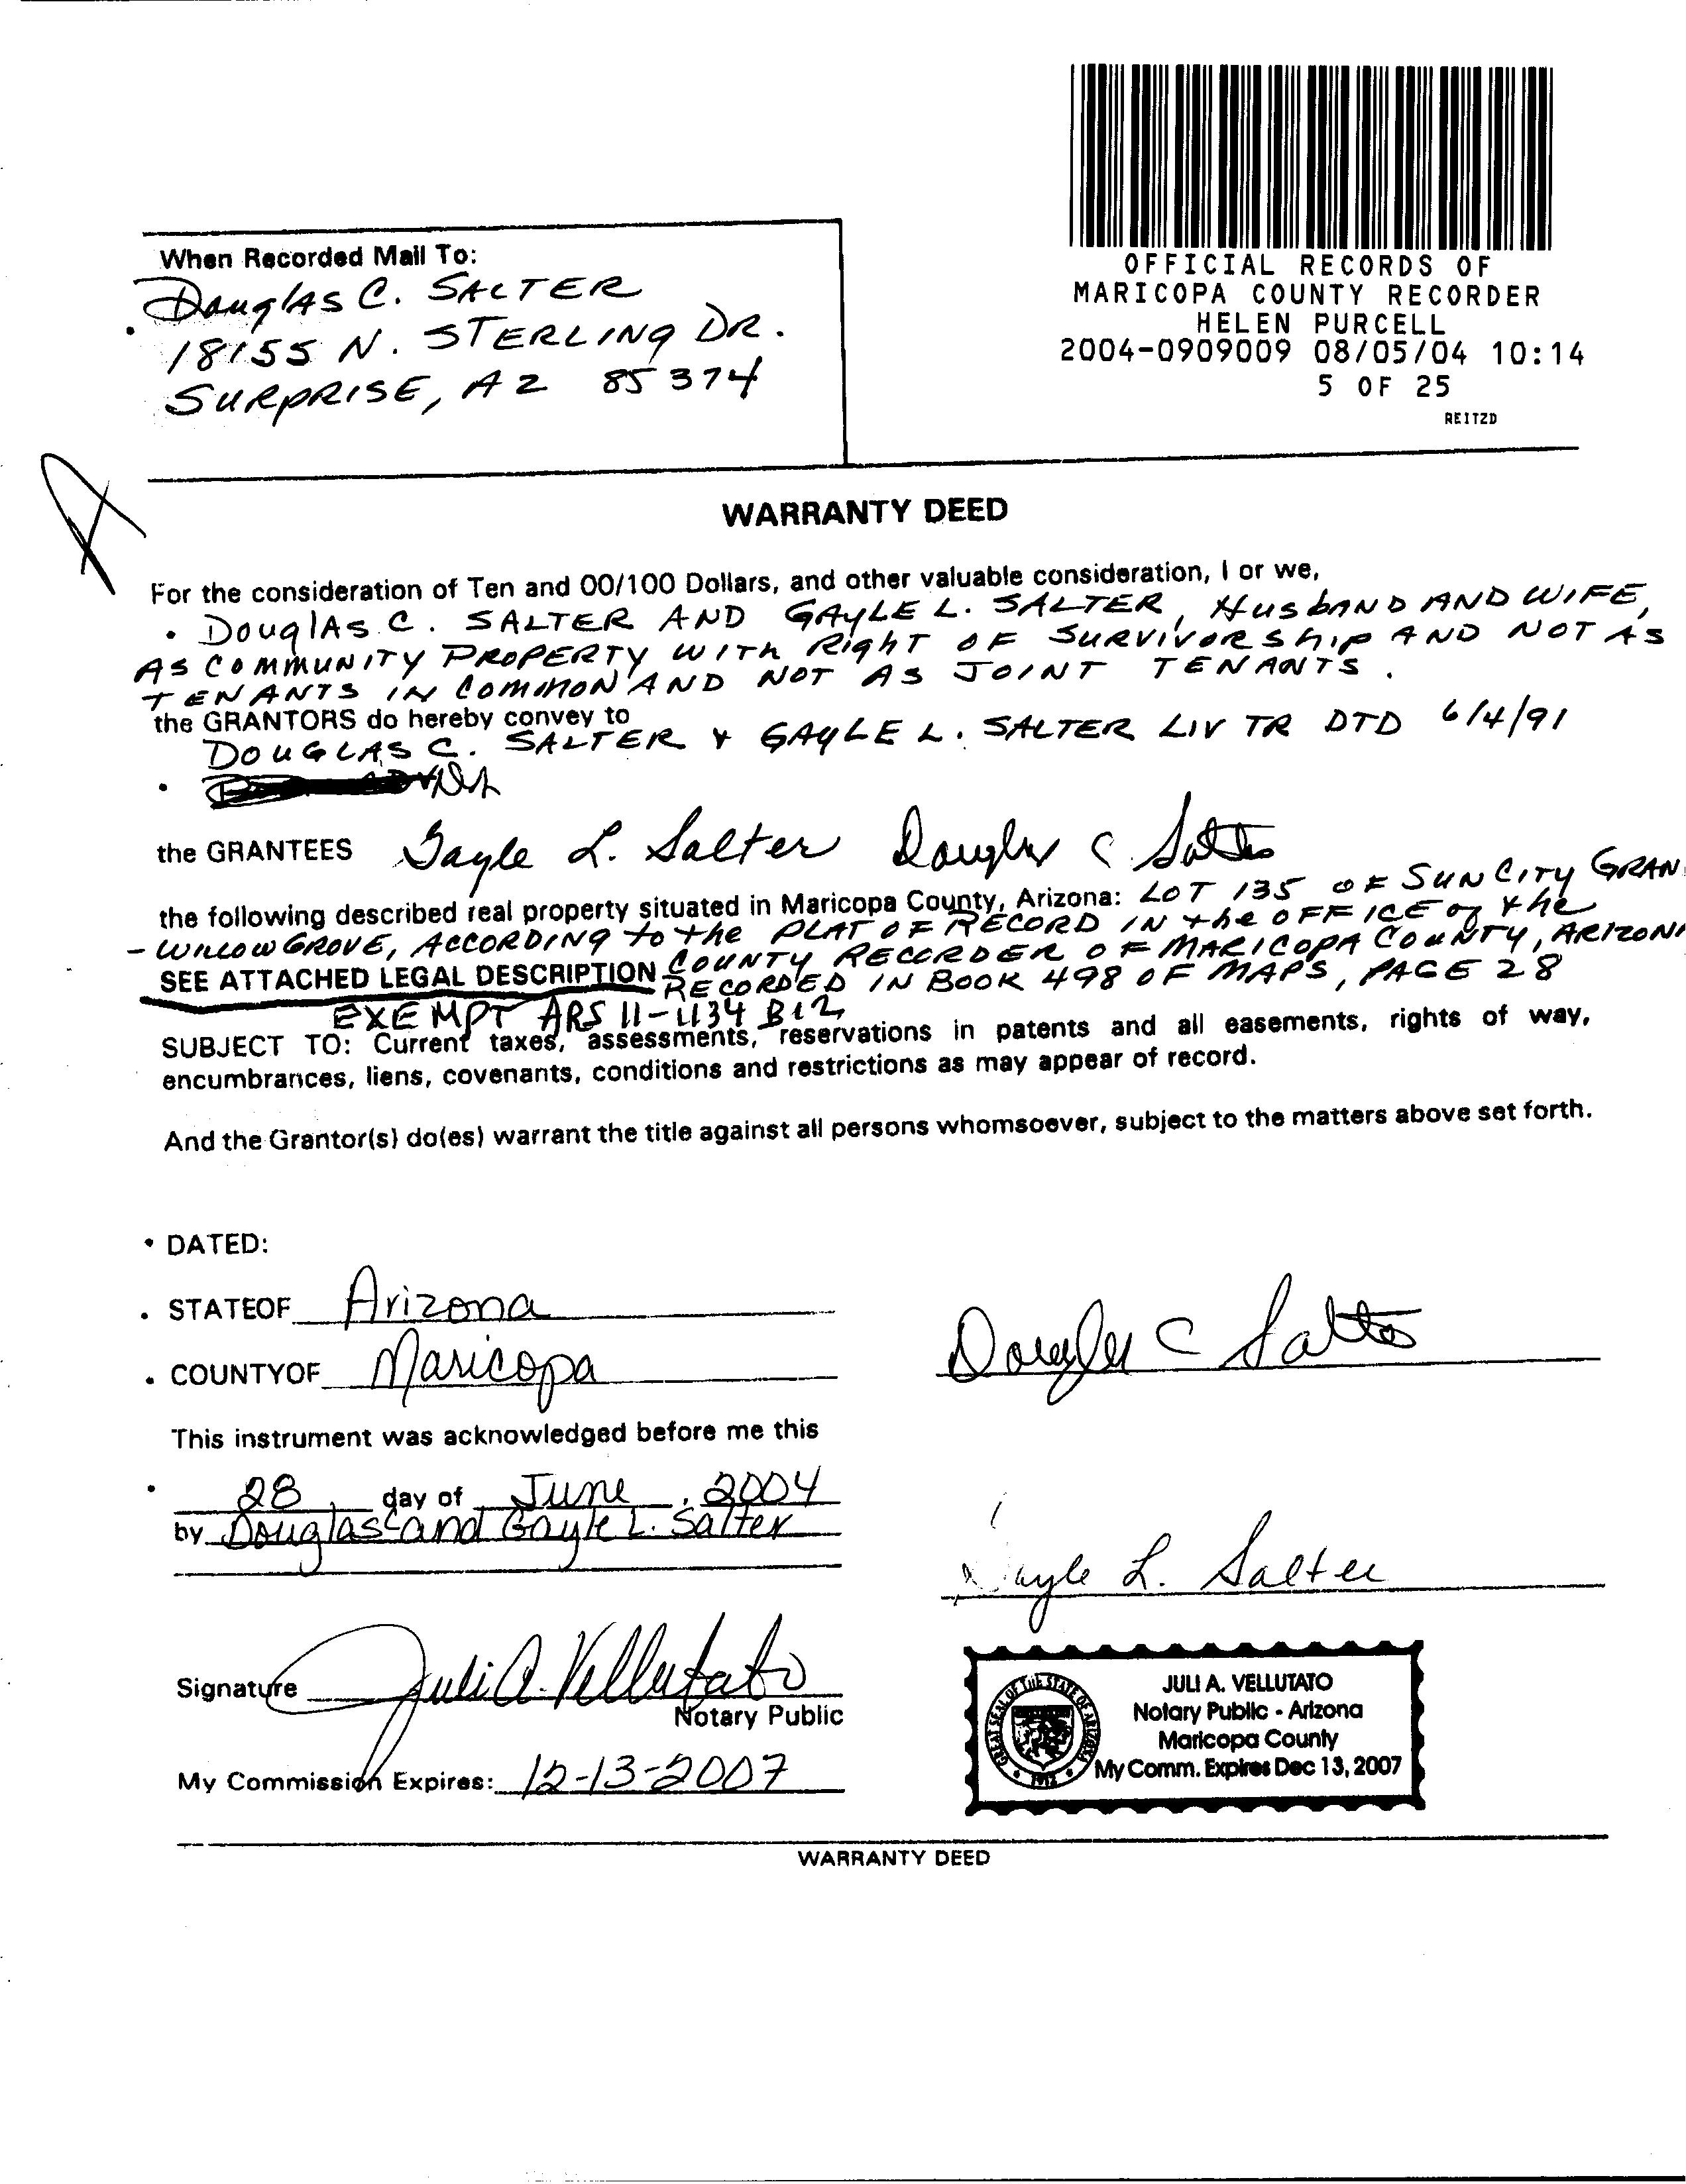 OFFICIAL RECORDS OF
MARICOPA COUNTY RECORDER
HELEN PURCELL
2004-0909009 08/05/04 10:14
5 OF 25
REITZD
When Recorded Mail To:
Douglas C. SALTER
18155 N. STERLING DR.
SURPRISE, AZ 85374
WARRANTY DEED
For the consideration of Ten and 00/100 Dollars, and other valuable consideration, I or we,
DouglAs C. SALTER AND GAYLE L. SALTER, HusbAND AND WIFE,
AS COMMUNITY PROPERTY WITH RIGHT OF SURVIVORSHIP AND NOT AS
TENANTS IN COMMON AND NOT AS JOINT TENANTS.
the GRANTORS do hereby convey to
DOUGLAS C. SALTER & GAYLE L. SALTER LIV TR DTD 6/4/91
the GRANTEES Gayle L. Salter Douglas C Salter
the following described real property situated in Maricopa County, Arizona: LOT 135 OF SUN CITY GRAN
- WILLOW GROVE, ACCORDING to the PLAT OF RECORD IN the OFFICE of the
COUNTY RECORDER OF MARICOPA COUNTY, ARIZONA
SEE ATTACHED LEGAL DESCRIPTION RECORDED IN BOOK 498 OF MAPS, PAGE 28
EXEMPT ARS 11-1134 B12
SUBJECT TO: Current taxes, assessments, reservations in patents and all easements, rights of way,
encumbrances, liens, covenants, conditions and restrictions as may appear of record.
And the Grantor(s) do(es) warrant the title against all persons whomsoever, subject to the matters above set forth.
DATED:
STATEOF Arizona
COUNTYOF Maricopa
Douglas C Salter
This instrument was acknowledged before me this
28 day of June, 2004
by Douglas C and Gayle L. Salter
Gayle L. Salter
Signature Juli A. Vellutato
Notary Public
My Commission Expires: 12-13-2007
GREAT SEAL OF THE STATE OF ARIZONA
1912
JULI A. VELLUTATO
Notary Public - Arizona
Maricopa County
My Comm. Expires Dec 13, 2007
WARRANTY DEED